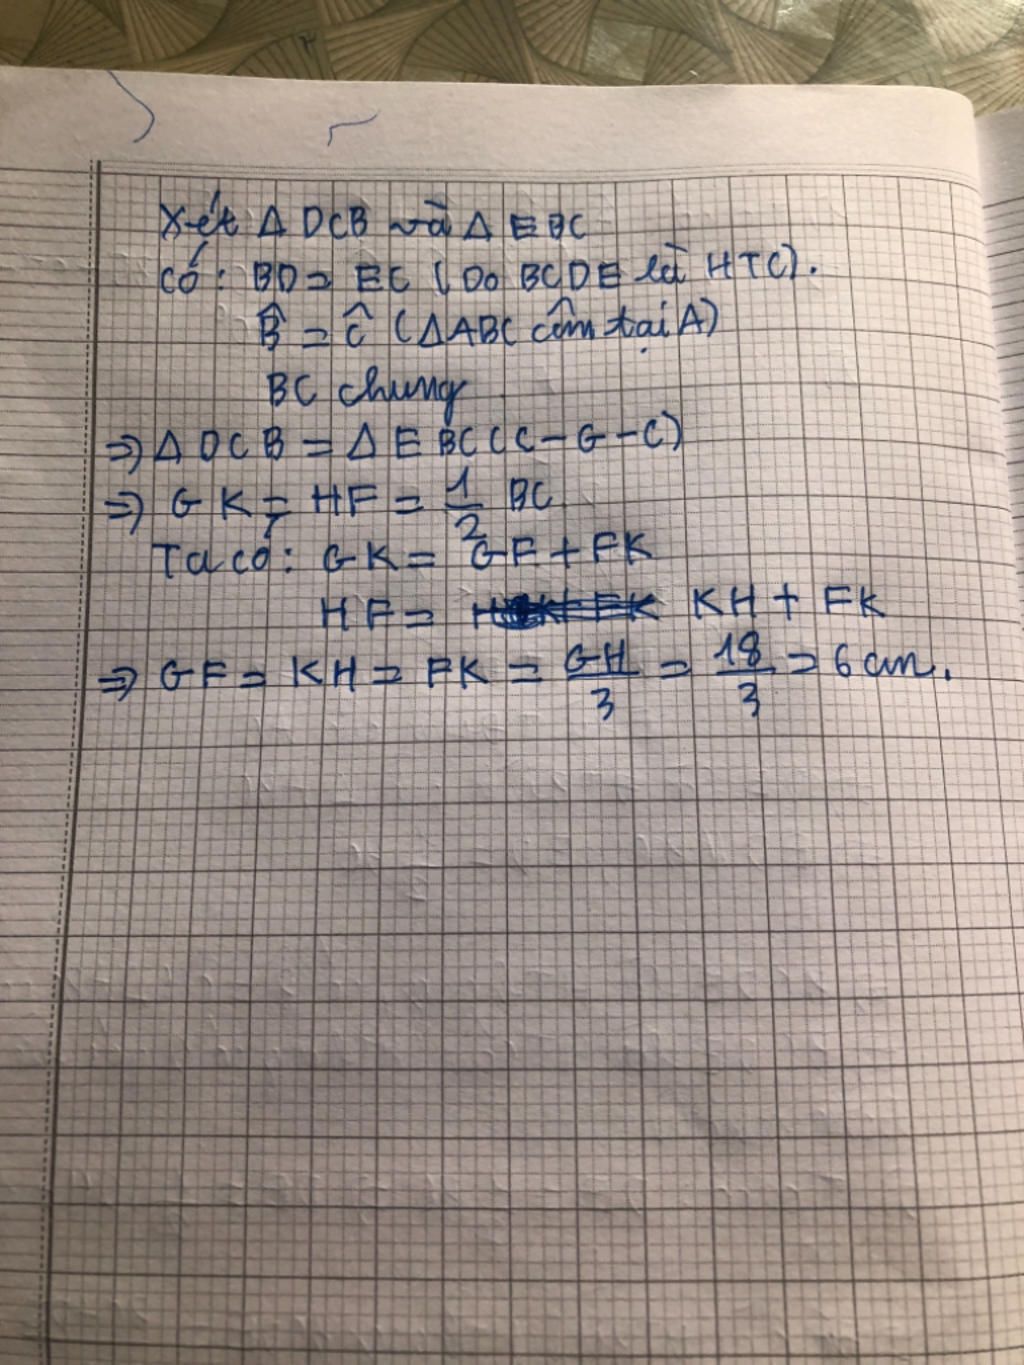 Xét Δ DCB và Δ EBC
Có: BD = EC (Do BCDE là HTC).
B̂ = Ĉ (ΔABC cân tại A)
BC chung
⇒ Δ DCB = Δ EBC (C-G-C)
⇒ GK = HF = 1/2 BC
Ta có: GK = GF + FK
HF = KH + FK
⇒ GF = KH = FK = GH/3 = 18/3 = 6 cm.